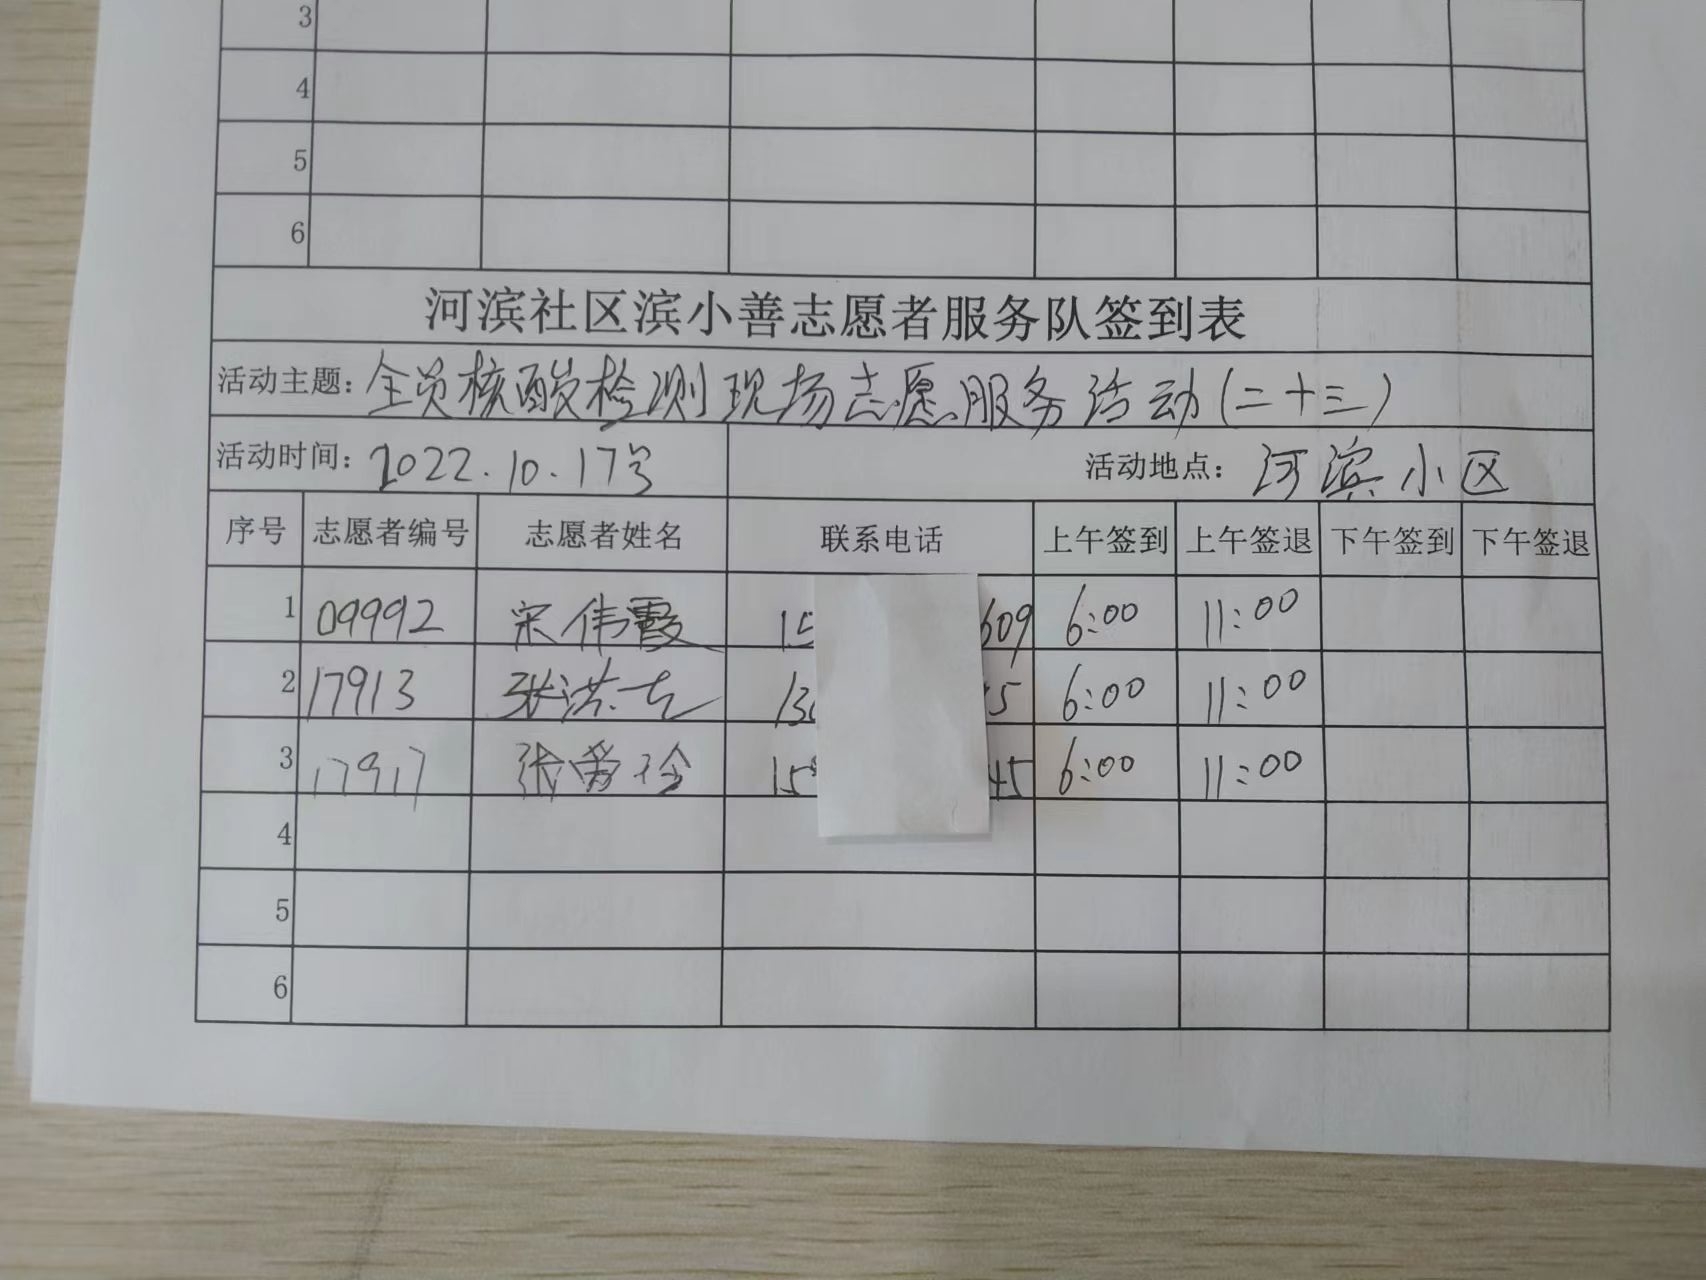 3
4
5
6
河滨社区滨小善志愿者服务队签到表
活动主题：全员核酸检测现场志愿服务活动(二十三)
活动时间：2022.10.17号 活动地点：河滨小区
序号 志愿者编号 志愿者姓名 联系电话 上午签到 上午签退 下午签到 下午签退
1 09992 宋伟霞 15 609 6:00 11:00
2 17913 张洪 13 5 6:00 11:00
3 17917 张爱玲 15 45 6:00 11:00
4
5
6